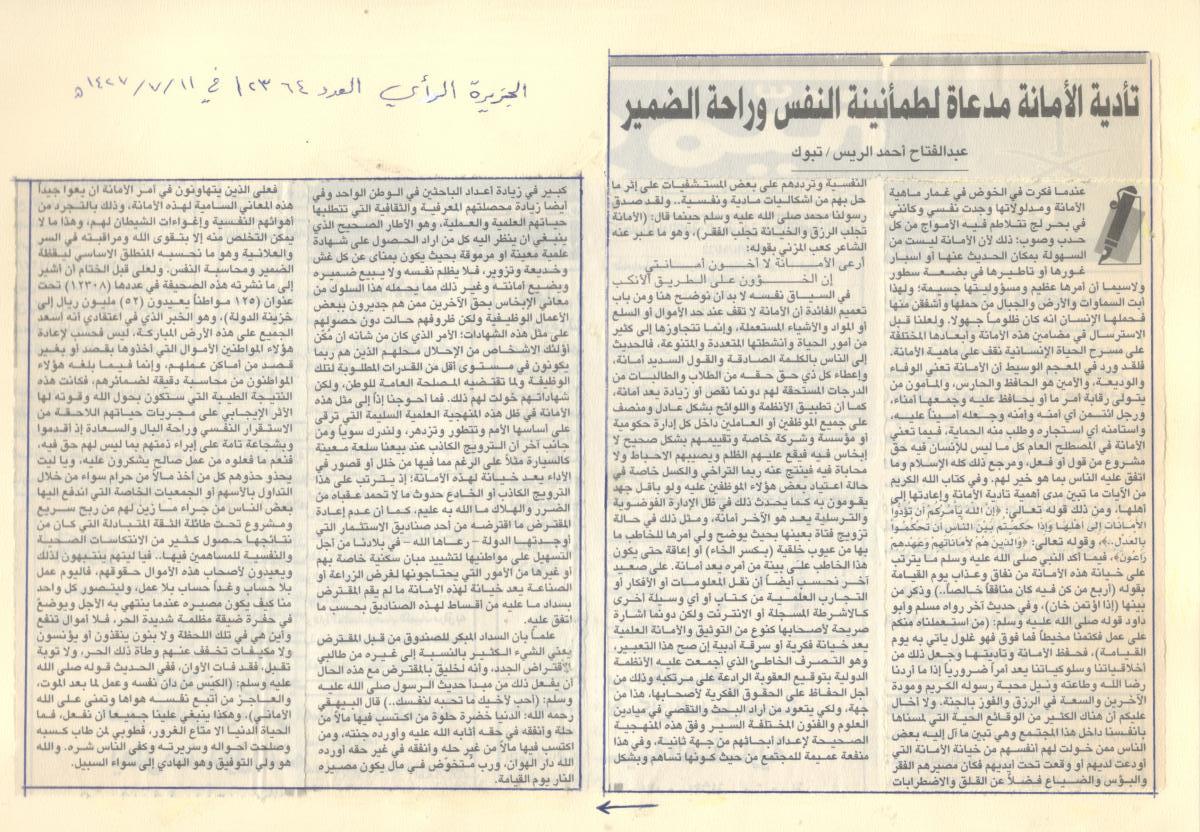 الجزيرة الرأي العدد ١٢٣٦٤ في ١١/٧/١٤٢٧هـ
تأدية الأمانة مدعاة لطمأنينة النفس وراحة الضمير
عبدالفتاح أحمد الريس/ تبوك
عندما فكرت في الخوض في غمار ماهية
الأمانة ومدلولاتها وجدت نفسي وكأنني
في بحر لج تتلاطم فيه الأمواج من كل
حدب وصوب؛ ذلك لأن الأمانة ليست من
السهولة بمكان الحديث عنها أو اسبار
غورها أو تاطيرها في بضعة سطور
ولاسيما أن أمرها عظيم ومسؤوليتها جسيمة؛ ولهذا
أبت السماوات والأرض والجبال من حملها وأشفقن منها
فحملها الإنسان انه كان ظلوماً جهولا. ولعلنا قبل
الاسترسال في مضامين هذه الأمانة وأبعادها المختلفة
على مسرح الحياة الإنسانية نقف على ماهية الأمانة.
فلقد ورد في المعجم الوسيط أن الأمانة تعني الوفاء
والوديعة، والأمين هو الحافظ والحارس، والمأمون من
يتولى رقابة أمر ما أو يحافظ عليه وجمعها أمناء،
ورجل ائتمن أي أمنه وآمنه وجعله أميناً عليه،
واستأمنه أي استجاره وطلب منه الحماية، فيما تعني
الأمانة في المصطلح العام كل ما ليس للإنسان فيه حق
مشروع من قول أو فعل، ومرجع ذلك كله الإسلام وما
اتفق عليه الناس بما هو خير لهم. وفي كتاب الله الكريم
من الآيات ما تبين مدى أهمية تأدية الأمانة وإعادتها إلى
أهلها، ومن ذلك قوله تعالى: ﴿إِنَّ اللّهَ يَأْمُرُكُمْ أَن تُؤدُّواْ
الأَمَانَاتِ إِلَى أَهْلِهَا وَإِذَا حَكَمْتُم بَيْنَ النَّاسِ أَن تَحْكُمُواْ
بِالْعَدْلِ..﴾، وقوله تعالى: ﴿وَالَّذِينَ هُمْ لِأَمَانَاتِهِمْ وَعَهْدِهِمْ
رَاعُونَ﴾، فيما أكد النبي صلى الله عليه وسلم ما يترتب
على خيانة هذه الأمانة من نفاق وعذاب يوم القيامة
بقوله (أربع من كن فيه كان منافقاً خالصاً..) وذكر من
بينها (إذا اؤتمن خان)، وفي حديث آخر رواه مسلم وأبو
داود قوله صلى الله عليه وسلم: (من استعملناه منكم
على عمل فكتمنا مخيطاً فما فوق فهو غلول يأتي به يوم
القيامة)، فحفظ الأمانة وتأديتها وجعل ذلك من
أخلاقياتنا وسلوكياتنا يعد أمراً ضرورياً إذا ما أردنا
رضا الله وطاعته ونيل محبة رسوله الكريم ومودة
الآخرين والسعة في الرزق والفوز بالجنة. ولا أخال
عليكم أن هناك الكثير من الوقائع الحية التي لمسناها
بأنفسنا داخل هذا المجتمع وهي تبين ما آل إليه بعض
الناس ممن خولت لهم أنفسهم من خيانة الأمانة التي
أودعت لديهم أو وقعت تحت أيديهم فكان مصيرهم الفقر
والبؤس والضياع فضلاً عن القلق والاضطرابات
النفسية وترددهم على بعض المستشفيات على إثر ما
حل بهم من اشكاليات مادية ونفسية.. ولقد صدق
رسولنا محمد صلى الله عليه وسلم حينما قال: (الأمانة
تجلب الرزق والخيانة تجلب الفقر)، وهو ما عبر عنه
الشاعر كعب المزني بقوله:
أرعى الأمانة لا أخون أمانتي
إن الخؤون على الطريق الأنكب
في السياق نفسه لا بد أن نوضح هنا ومن باب
تعميم الفائدة أن الأمانة لا تقف عند حد الأموال أو السلع
أو المواد والأشياء المستعملة، وإنما تتجاوزها إلى كثير
من أمور الحياة وأنشطتها المتعددة والمتنوعة، فالحديث
إلى الناس بالكلمة الصادقة والقول السديد أمانة،
وإعطاء كل ذي حق حقه من الطلاب والطالبات من
الدرجات المستحقة لهم دونما نقص أو زيادة يعد أمانة،
كما أن تطبيق الأنظمة واللوائح بشكل عادل ومنصف
على جميع الموظفين أو العاملين داخل كل إدارة حكومية
أو مؤسسة وشركة خاصة وتقييمهم بشكل صحيح لا
إبخاس فيه فيقع عليهم الظلم ويصيبهم الاحباط ولا
محاباة فيه فينتج عنه ربما التراخي والكسل خاصة في
حالة اعتياد بعض هؤلاء الموظفين عليه ولو بأقل جهد
يقومون به كما يحدث ذلك في ظل الإدارة الفوضوية
والترسلية يعد هو الآخر أمانة، ومثل ذلك في حالة
تزويج فتاة بعينها بحيث يوضح ولي أمرها للخاطب ما
بها من عيوب خلقية (بكسر الخاء) أو إعاقة حتى يكون
هذا الخاطب على بينة من أمره يعد أمانة. على صعيد
آخر نحسب أيضاً أن نقل المعلومات أو الأفكار أو
التجارب العلمية من كتاب أو أي وسيلة أخرى
كالاشرطة المسجلة أو الانترنت ولكن دونما اشارة
صريحة لأصحابها كنوع من التوثيق والأمانة العلمية
يعد خيانة فكرية أو سرقة أدبية إن صح هذا التعبير،
وهو التصرف الخاطئ الذي أجمعت عليه الأنظمة
الدولية بتوقيع العقوبة الرادعة على مرتكبه وذلك من
أجل الحفاظ على الحقوق الفكرية لأصحابها، هذا من
جهة، ولكي يتعود من أراد البحث والتقصي في ميادين
العلوم والفنون المختلفة السير وفق هذه المنهجية
الصحيحة لإعداد أبحاثهم من جهة ثانية، وفي هذا
منفعة عميمة للمجتمع من حيث كونها تساهم وبشكل
كبير في زيادة أعداد الباحثين في الوطن الواحد وفي
أيضا زيادة محصلتهم المعرفية والثقافية التي تتطلبها
حياتهم العلمية والعملية، وهو الأطار الصحيح الذي
ينبغي ان ينظر اليه كل من اراد الحصول على شهادة
علمية معينة أو مرموقة بحيث يكون بمنأى عن كل غش
وخديعة وتزوير، فلا يظلم نفسه ولا يبيع ضميره
ويضيع أمانته وغير ذلك مما يحمله هذا السلوك من
معاني الإبخاس بحق الآخرين ممن هم جديرون ببعض
الأعمال الوظيفية ولكن ظروفهم حالت دون حصولهم
على مثل هذه الشهادات؛ الأمر الذي كان من شانه ان مُكّن
أولئك الاشخاص من الإحلال محلهم الذين هم ربما
يكونون في مستوى أقل من القدرات المطلوبة لتلك
الوظيفة ولما تقتضيه المصلحة العامة للوطن، ولكن
شهاداتهم خولت لهم ذلك. فما أحوجنا إذاً إلى مثل هذه
الأمانة في ظل هذه المنهجية العلمية السليمة التي ترقى
على أساسها الأمم وتتطور وتزدهر، ولندرك سوياً ومن
جانب آخر أن الترويج الكاذب عند بيعنا سلعة معينة
كالسيارة مثلاً على الرغم مما فيها من خلل أو قصور في
الأداء يعد خيانة لهذه الأمانة؛ إذ يترتب على هذا
الترويج الكاذب أو الخادع حدوث ما لا تحمد عقباه من
الضرر والهلاك ما الله به عليم، كما أن عدم إعادة
المقترض ما اقترضه من أحد صناديق الاستثمار التي
أوجدتها الدولة - رعاها الله - في بلادنا من أجل
التسهيل على مواطنيها لتشييد مبان سكنية خاصة بهم
أو غيرها من الأمور التي يحتاجونها لغرض الزراعة أو
الصناعة يعد خيانة لهذه الأمانة ما لم يقم المقترض
بسداد ما عليه من أقساط لهذه الصناديق بحسب ما
اتفق عليه.
علماً بأن السداد المبكر للصندوق من قبل المقترض
يعني الشيء الكثير بالنسبة إلى غيره من طالبي
الاقتراض الجدد، وأنه لخليق بالمقترض مع هذه الحال
أن يفعل ذلك من مبدأ حديث الرسول صلى الله عليه
وسلم: (أحب لأخيك ما تحبه لنفسك..) قال البيهقي
رحمه الله: الدنيا خضرة حلوة من اكتسب فيها مالاً من
حلة وأنفقه في حقه أثابه الله عليه وأورده جنته، ومن
اكتسب فيها مالاً من غير حله وأنفقه في غير حقه أورده
الله دار الهوان، ورب متخوض في مال يكون مصيره
النار يوم القيامة.
فعلى الذين يتهاونون في أمر الأمانة أن يعوا جيداً
هذه المعاني السامية لهذه الأمانة، وذلك بالتجرد من
أهوائهم النفسية وإغواءات الشيطان لهم، وهذا ما لا
يمكن التخلص منه إلا بتقوى الله ومراقبته في السر
والعلانية وهو ما نحسبه المنطلق الاساسي ليقظة
الضمير ومحاسبة النفس. ولعلي قبل الختام أن أشير
إلى ما نشرته هذه الصحيفة في عددها (١٢٣٠٨) تحت
عنوان (١٢٥ مواطناً يعيدون (٥٢) مليون ريال إلى
خزينة الدولة)، وهو الخبر الذي في اعتقادي أنه أسعد
الجميع على هذه الأرض المباركة، ليس فحسب لإعادة
هؤلاء المواطنين الأموال التي أخذوها بقصد أو بغير
قصد من أماكن عملهم، وإنما فيما بلغه هؤلاء
المواطنون من محاسبة دقيقة لضمائرهم، فكانت هذه
النتيجة الطيبة التي ستكون بحول الله وقوته لها
الأثر الإيجابي على مجريات حياتهم اللاحقة من
الاستقرار النفسي وراحة البال والسعادة إذ أقدموا
وبشجاعة تامة على إبراء ذمتهم بما ليس لهم حق فيه،
فنعم ما فعلوه من عمل صالح يشكرون عليه، ويا ليت
يحذو حذوهم كل من أخذ مالاً من حرام سواء من خلال
التداول بالأسهم أو الجمعيات الخاصة التي اندفع إليها
بعض الناس من جراء ما زين لهم من ربح سريع
ومشروع تحت طائلة الثقة المتبادلة التي كان من
نتائجها حصول كثير من الانتكاسات الصحية
والنفسية للمساهمين فيها.. فيا ليتهم ينتبهون لذلك
ويعيدون لأصحاب هذه الأموال حقوقهم، فاليوم عمل
بلا حساب وغداً حساب بلا عمل، وليتصور كل واحد
منا كيف يكون مصيره عندما ينتهي به الأجل ويوضع
في حفرة ضيقة مظلمة شديدة الحر، فلا أموال تنفع
وأين هي في تلك اللحظة ولا بنون ينقذون أو يؤنسون
ولا مكيفات تخفف عنهم وطأة ذلك الحر، ولا توبة
تقبل، فقد فات الأوان، ففي الحديث قوله صلى الله
عليه وسلم: (الكيّس من دان نفسه وعمل لما بعد الموت،
والعاجز من أتبع نفسه هواها وتمنى على الله
الأماني)، وهكذا ينبغي علينا جميعاً أن نفعل، فما
الحياة الدنيا الا متاع الغرور، فطوبى لمن طاب كسبه
وصلحت أحواله وسريرته وكفى الناس شره. والله
هو ولي التوفيق وهو الهادي إلى سواء السبيل.